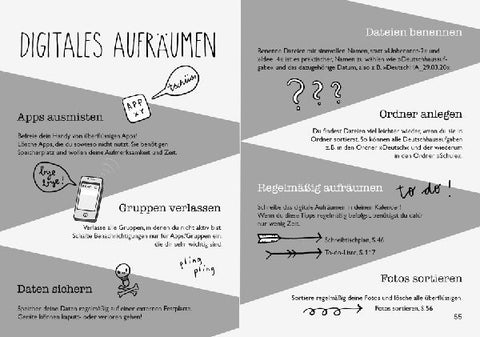 DIGITALES AUFRÄUMEN
tschüss
APP XY
Apps ausmisten
Befreie dein Handy von überflüssigen Apps!
Lösche Apps, die du sowieso nicht nutzt. Sie benötigen
Speicherplatz und wollen deine Aufmerksamkeit und Zeit.
bye
bye!
Gruppen verlassen
Verlasse alle Gruppen, in denen du nicht aktiv bist.
Schalte Benachrichtigungen nur für Apps/Gruppen ein,
die dir sehr wichtig sind.
pling
pling
Daten sichern
Speicher deine Daten regelmäßig auf einer externen Festplatte.
Geräte können kaputt- oder verloren gehen!
Dateien benennen
Benenne Dateien mit sinnvollen Namen, statt »Unbenannt-2« und
»Idee 4« ist es praktischer, Namen zu wählen wie »Deutschhausauf-
gabe« und das dazugehörige Datum, also z.B. »Deutsch HA_29.03.20«.
???
Ordner anlegen
Du findest Dateien viel leichter wieder, wenn du sie in
Ordner sortierst. So können alle Deutschhausaufgaben
z.B. in den Ordner »Deutsch« und der wiederum
in den Ordner »Schule«.
Regelmäßig aufräumen
to do!
Schreibe das digitale Aufräumen in deinen Kalender!
Wenn du diese Tipps regelmäßig befolgst, benötigst du dafür
nur wenig Zeit.
Schreibtischplan, S.46
To-do-Liste, S.117
Fotos sortieren
Sortiere regelmäßig deine Fotos und lösche alle überflüssigen.
Fotos sortieren, S.56
55